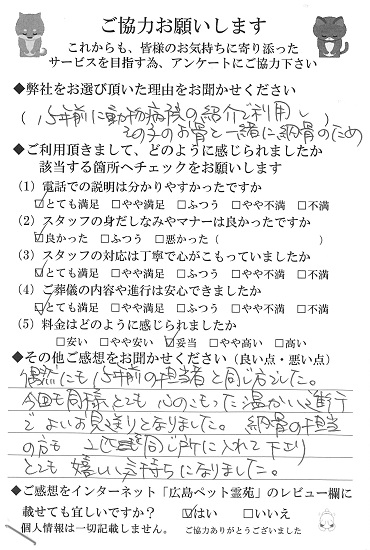 ご協力お願いします
これからも、皆様のお気持ちに寄り添った
サービスを目指す為、アンケートにご協力下さい
◆弊社をお選び頂いた理由をお聞かせください
( 15年前に動物病院の紹介で利用し
その子のお骨と一緒に納骨のため
◆ご利用頂きまして、どのように感じられましたか
該当する箇所へチェックをお願いします
(1) 電話での説明は分かりやすかったですか
☑とても満足 □やや満足 □ふつう □やや不満 □不満
(2) スタッフの身だしなみやマナーは良かったですか
☑良かった □ふつう □悪かった( )
(3) スタッフの対応は丁寧で心がこもっていましたか
☑とても満足 □やや満足 □ふつう □やや不満 □不満
(4) ご葬儀の内容や進行は安心できましたか
☑とても満足 □やや満足 □ふつう □やや不満 □不満
(5) 料金はどのように感じられましたか
□安い □やや安い ☑妥当 □やや高い □高い
◆その他ご感想をお聞かせください(良い点・悪い点)
偶然にも15年前の担当者と同じ方でした。
今回も同様とても心のこもった温かい進行
でよいお見送りとなりました。納骨の担当
の方も 2匹 同じ所に入れて下さり
とても嬉しい気持ちになりました。
◆ご感想をインターネット「広島ペット霊苑」のレビュー欄に
載せても宜しいですか? ☑はい □いいえ
個人情報は一切記載しません。 ご協力ありがとうございました